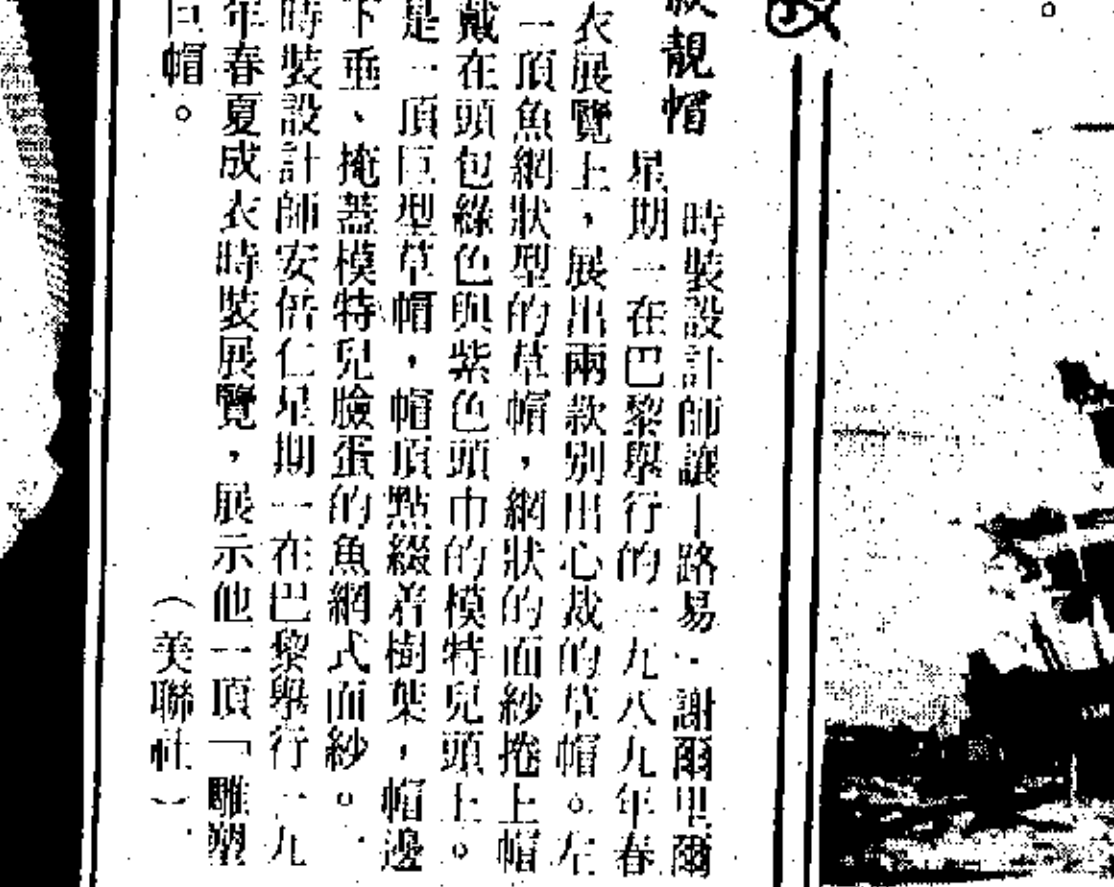 靚帽
時裝設計師讓—路易·謝爾里爾
星期一在巴黎舉行的一九八九年春
衣展覽上，展出兩款別出心裁的草帽。左
一頂魚網狀型的草帽，網狀的面紗捲上帽
戴在頭包綠色與紫色頭巾的模特兒頭上。
是一頂巨型草帽，帽頂點綴着樹葉，帽邊
下垂、掩蓋模特兒臉蛋的魚網式面紗。
時裝設計師安倍仁星期一在巴黎舉行一九
年春夏成衣時裝展覽，展示他一頂「雕塑
巨帽。
（美聯社）